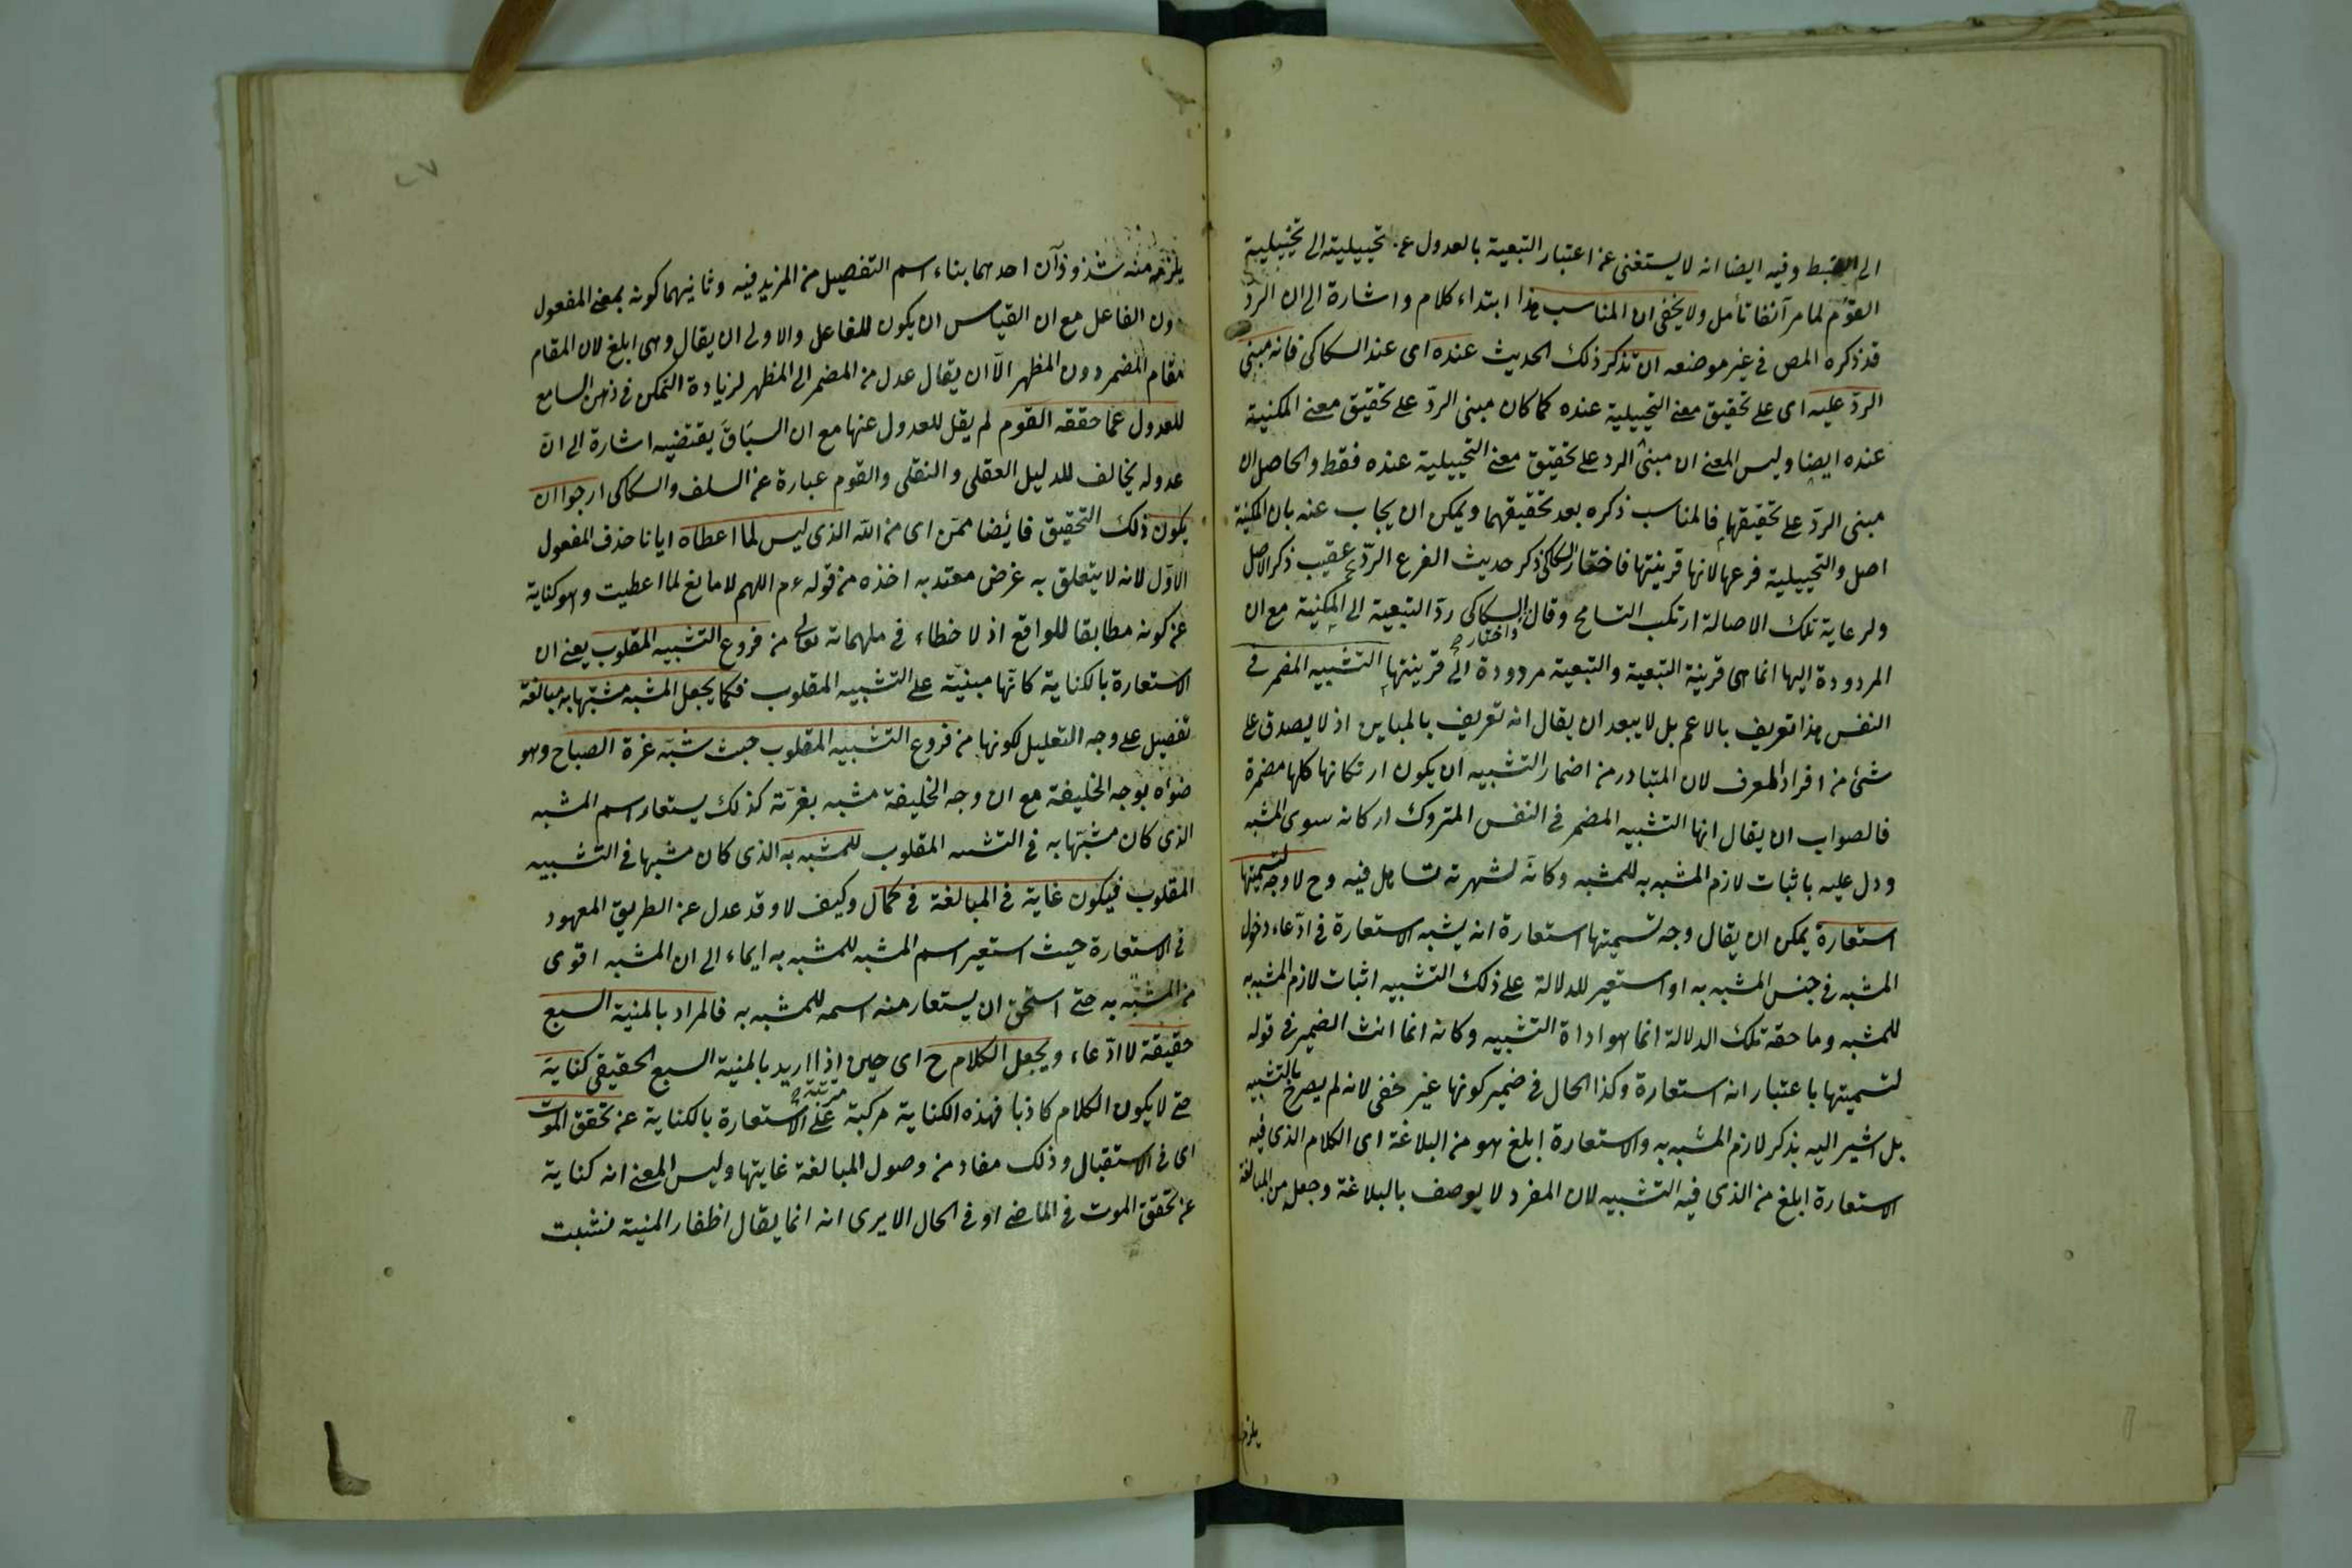 الى الضبط وفيه ايضا انه لا يستغنى عن اعتبار التبعية بالعدول عن تخييلية الى تخييلية
القوم لما مر آنفا تأمل ولا يخفى ان المناسب هذا ابتداء كلام واشارة الى ان الرد
قد ذكره المص فى غير موضعه ان تذكر ذلك الحديث عنده اى عند السكاكى فانه مبنى
الردّ عليه اى على تحقيق معنى التخييلية عنده كما كان مبنى الردّ على تحقيق معنى المكنية
عنده ايضا وليس المعنى ان مبنى الرد على تحقيق معنى التخييلية عنده فقط والحاصل ان
مبنى الردّ على تحقيقهما فالمناسب ذكره بعد تحقيقهما ويمكن ان يجاب عنه بان المكنية
اصل والتخييلية فرعها لانها قرينتها فاختار السكاكى ذكر حديث الفرع الردّ عقيب ذكر الاصل
ولرعاية تلك الاصالة ارتكب التسامح وقال السكاكى ردّ التبعية الى المكنية مع ان
واختار صح
المردودة اليها انما هى قرينة التبعية والتبعية مردودة الى قرينتها التشبيه المضمر فى
النفس هذا تعريف بالاعم بل لا يبعد ان يقال انه تعريف بالمباين اذ لا يصدق على
شئ من افراد المعرف لان المتبادر من اضمار التشبيه ان يكون اركانها كلها مضمرة
فالصواب ان يقال انها التشبيه المضمر فى النفس المتروك اركانه سوى المشبه
ودل عليه باثبات لازم المشبه به للمشبه وكانّه لشهرته تساهل فيه وح لا وجه لتسميتها
استعارة يمكن ان يقال وجه تسميتها استعارة انه يشبه الاستعارة فى ادّعاء دخول
المشبه فى جنس المشبه به او استعير للدلالة على ذلك التشبيه اثبات لازم المشبه به
للمشبه وما حقه تلك الدلالة انما هو اداة التشبيه وكانه انما انث الضمير فى قوله
لتسميتها باعتبار انه استعارة وكذا الحال فى ضمير كونها غير خفى لانه لم يصرح بالتشبيه
بل اشير اليه بذكر لازم المشبه به والاستعارة ابلغ هو من البلاغة اى الكلام الذى فيه
الاستعارة ابلغ من الذى فيه التشبيه لان المفرد لا يوصف بالبلاغة وجعل من المبالغة
يلزمه
يلزمه منه شذوذان احدهما بناء اسم التفضيل من المزيد فيه وثانيهما كونه بمعنى المفعول
دون الفاعل مع ان القياس ان يكون للفاعل والاولى ان يقال وهى ابلغ لان المقام
مقام المضمر دون المظهر الّا ان يقال عدل من المضمر الى المظهر لزيادة التمكن فى ذهن السامع
للعدول عما حققه القوم لم يقل للعدول عنها مع ان السياق يقتضيه اشارة الى انّ
عدوله يخالف للدليل العقلى والنقلى والقوم عبارة عن السلف والسكاكى ارجوا ان
يكون ذلك التحقيق فائضا ممن اى من الله الذى ليس لما اعطاه ايانا حذف المفعول
الاول لانه لا يتعلق به غرض معتد به اخذه من قوله ءم اللهم لا مانع لما اعطيت وهو كناية
عن كونه مطابقا للواقع اذ لا خطاء فى ملهمات تعالى من فروع التشبيه المقلوب يعنى ان
الاستعارة بالكناية كانّها مبنيّة على التشبيه المقلوب فكما يجعل المشبه مشبّها به مبالغة
تفصيل على وجه التعليل لكونها من فروع التشبيه المقلوب حيث شبّه غرة الصباح وهو
ضواه بوجه الخليفة مع ان وجه الخليفة مشبه بغرته كذلك يستعار اسم المشبه
الذى كان مشبّها به فى التشبيه المقلوب للمشبه به الذى كان مشبها فى التشبيه
المقلوب فيكون غاية فى المبالغة فى كمال وكيف لا وقد عدل عن الطريق المعهود
فى الاستعارة حيث استعير اسم المشبه للمشبه به ايماء الى ان المشبه اقوى
من المشبّه به حتى استحق ان يستعار منه اسمه للمشبه به فالمراد بالمنية السبع
حقيقة لا ادّعاء ويجعل الكلام ح اى حين اذا اريد بالمنية السبع الحقيقى كناية
مرتبة صح
حتى لا يكون الكلام كاذبا فهذه الكناية مركبة على الاستعارة بالكناية عن تحقق الموت
اى فى الاستقبال وذلك مفاد من وصول المبالغة غايتها وليس المعنى انه كناية
عن تحقق الموت فى الماضى او فى الحال الا يرى انه انما يقال اظفار المنية نشبت